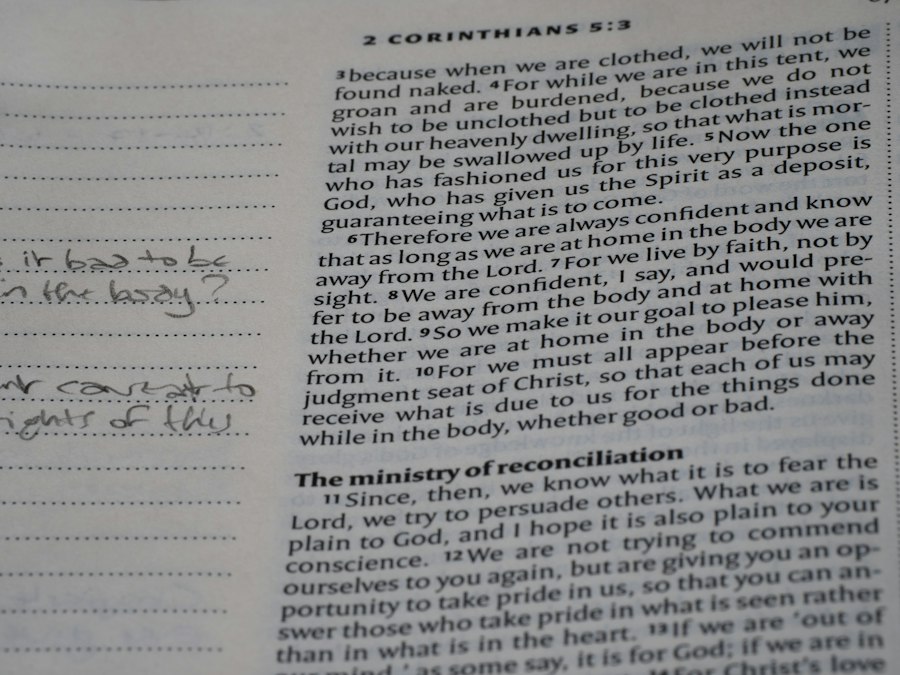 2 CORINTHIANS 5:3
3 because when we are clothed, we will not be
found naked. 4 For while we are in this tent, we
groan and are burdened, because we do not
wish to be unclothed but to be clothed instead
with our heavenly dwelling, so that what is mor-
tal may be swallowed up by life. 5 Now the one
who has fashioned us for this very purpose is
God, who has given us the Spirit as a deposit,
guaranteeing what is to come.
6 Therefore we are always confident and know
that as long as we are at home in the body we are
away from the Lord. 7 For we live by faith, not by
sight. 8 We are confident, I say, and would pre-
fer to be away from the body and at home with
the Lord. 9 So we make it our goal to please him,
whether we are at home in the body or away
from it. 10 For we must all appear before the
judgment seat of Christ, so that each of us may
receive what is due to us for the things done
while in the body, whether good or bad.
The ministry of reconciliation
11 Since, then, we know what it is to fear the
Lord, we try to persuade others. What we are is
plain to God, and I hope it is also plain to your
conscience. 12 We are not trying to commend
ourselves to you again, but are giving you an op-
portunity to take pride in us, so that you can an-
swer those who take pride in what is seen rather
than in what is in the heart. 13 If we are 'out of
our mind,' as some say, it is for God; if we are in
14 For Christ's love
it has to be
in the body?
to
of this